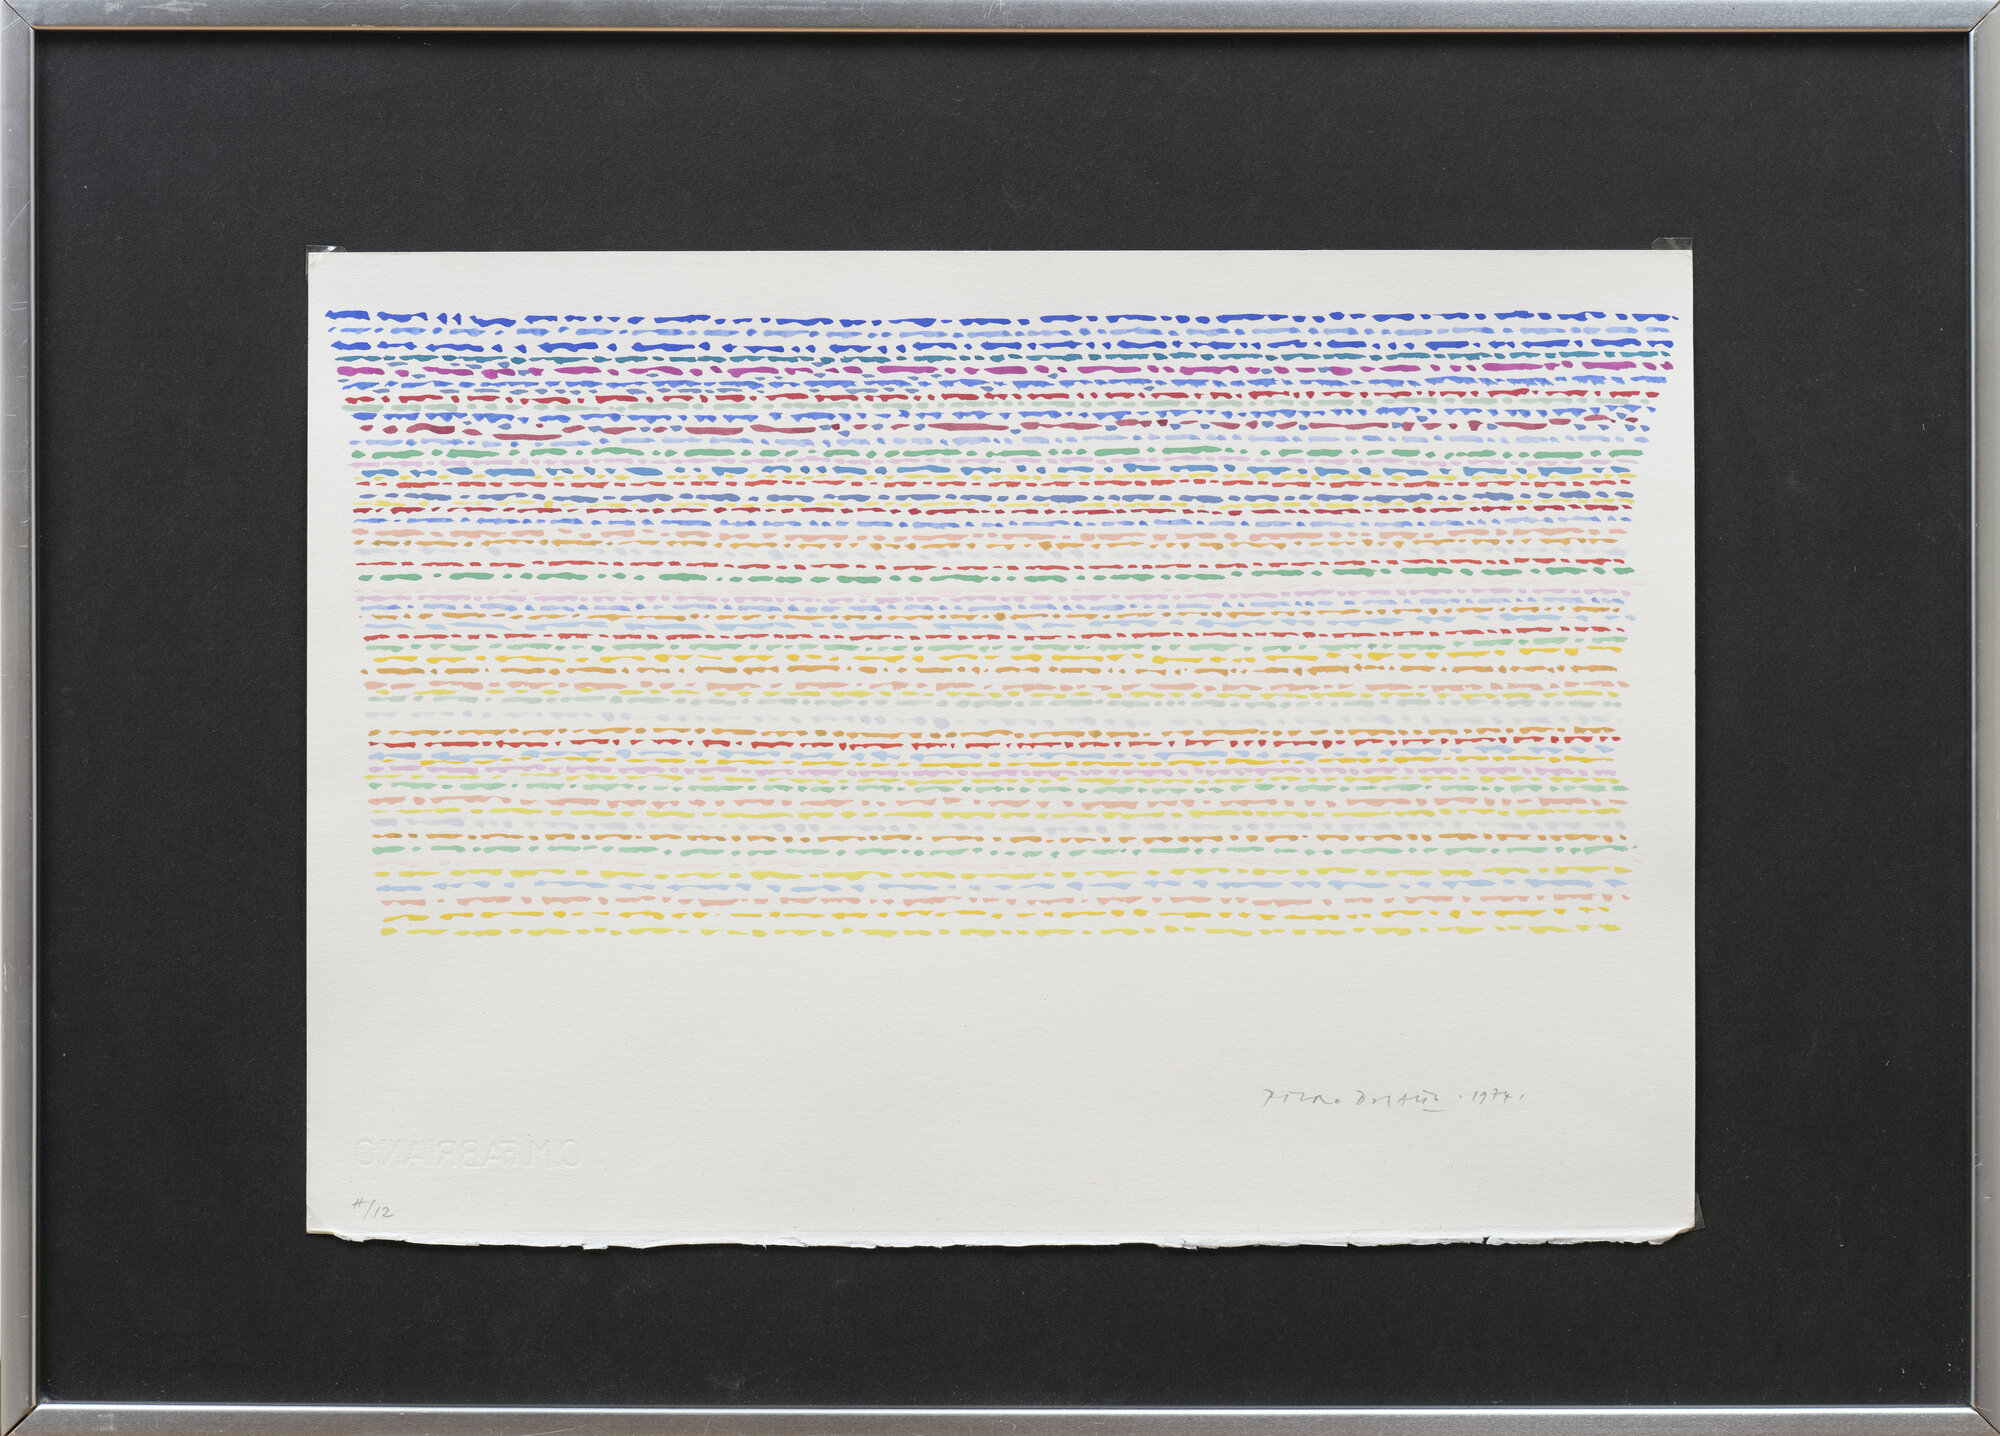 PIERO DORAZIO · 1974.
C.M.FABRIANO
#/12